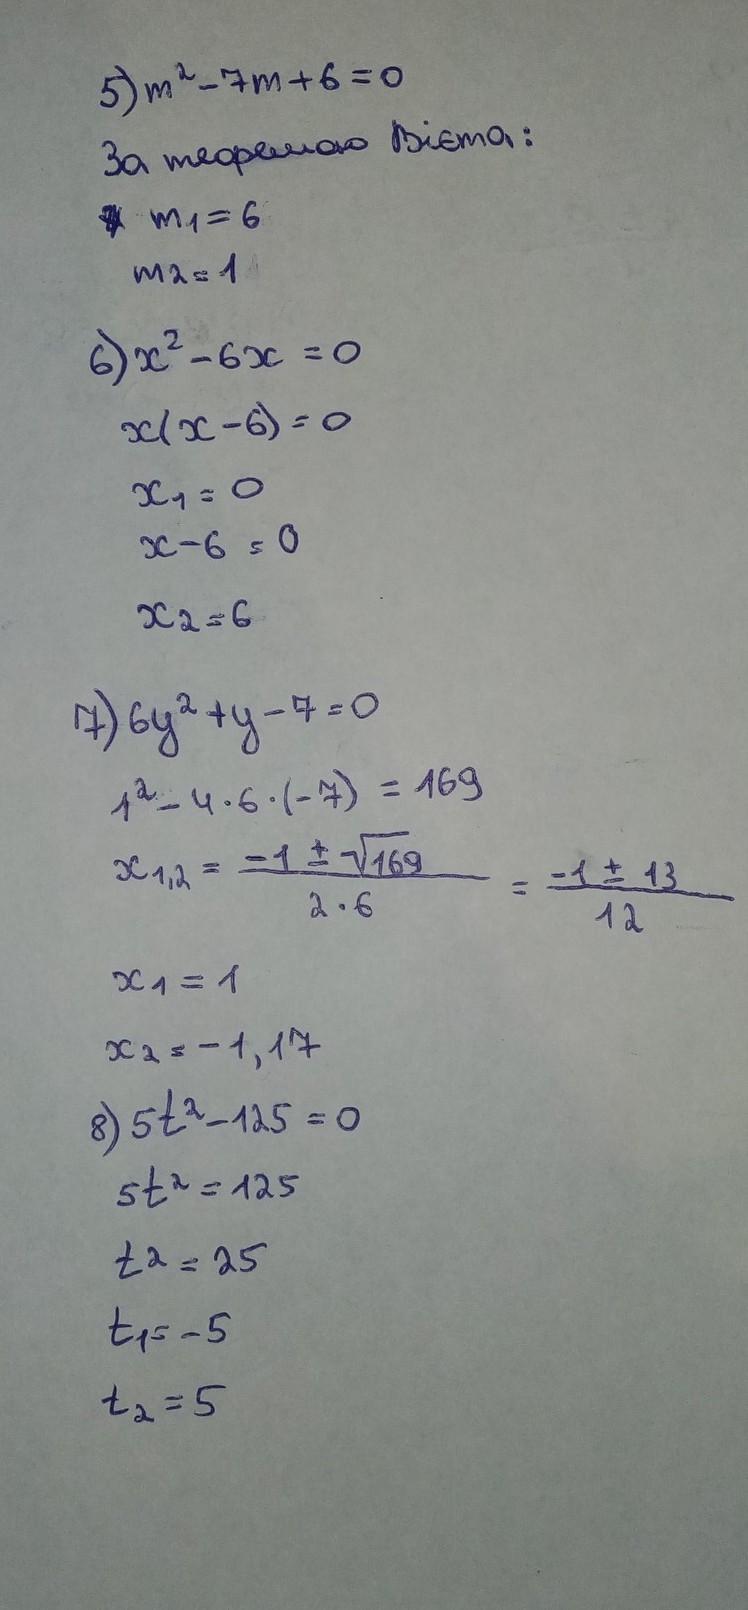 5) m² - 7m + 6 = 0
За теоремою Вієта:
m₁ = 6
m₂ = 1
6) x² - 6x = 0
x(x - 6) = 0
x₁ = 0
x - 6 = 0
x₂ = 6
7) 6y² + y - 7 = 0
1² - 4·6·(-7) = 169
x₁,₂ = (-1 ± √169)/(2·6) = (-1 ± 13)/12
x₁ = 1
x₂ = -1,17
8) 5t² - 125 = 0
5t² = 125
t² = 25
t₁ = -5
t₂ = 5